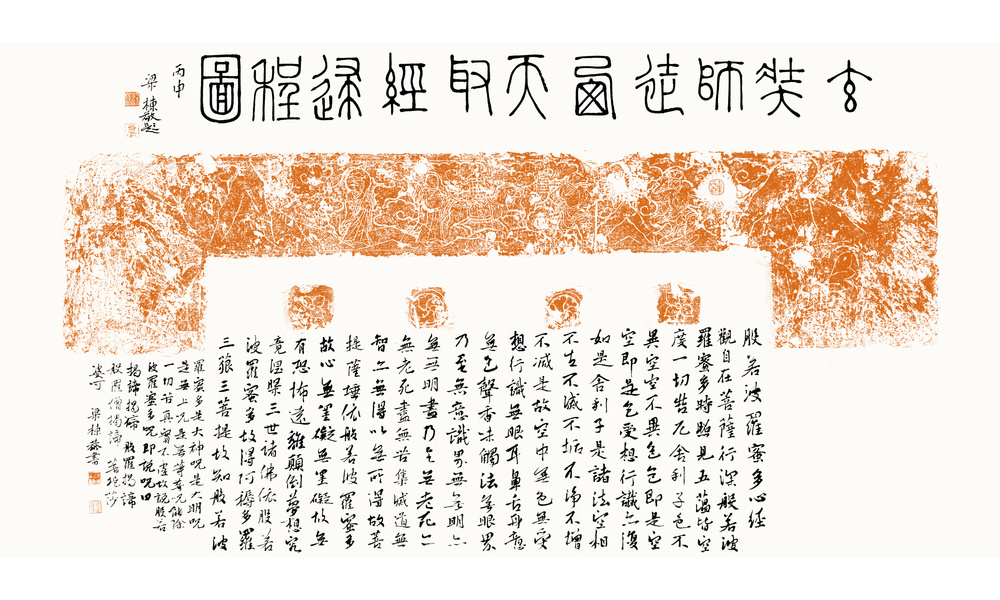 玄奘師徒西天取經途程圖
丙申
梁棟敬題
般若波羅蜜多心經
觀自在菩薩行深般若波
羅蜜多時照見五蘊皆空
度一切苦厄舍利子色不
異空空不異色色即是空
空即是色受想行識亦復
如是舍利子是諸法空相
不生不滅不垢不淨不增
不減是故空中無色無受
想行識無眼耳鼻舌身意
無色聲香味觸法無眼界
乃至無意識界無無明亦
無無明盡乃至無老死亦
無老死盡無苦集滅道無
智亦無得以無所得故菩
提薩埵依般若波羅蜜多
故心無罣礙無罣礙故無
有恐怖遠離顛倒夢想究
竟涅槃三世諸佛依般若
波羅蜜多故得阿耨多羅
三藐三菩提故知般若波
羅蜜多是大神咒是大明咒
是無上咒是無等等咒能除
一切苦真實不虛故說般若
波羅蜜多咒即說咒曰
揭諦揭諦 般羅揭諦
般羅僧揭諦 菩提莎
婆訶 梁棟敬書